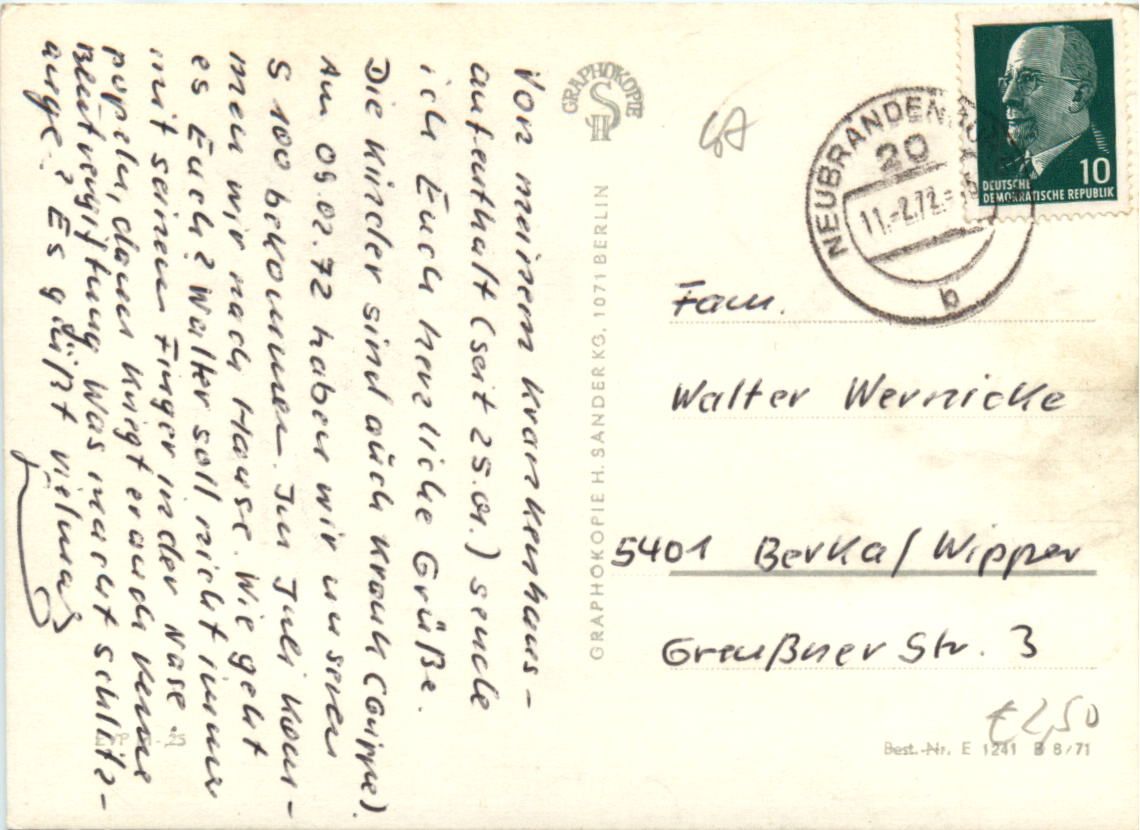 Von meinem Krankenhaus-
aufenthalt (seit 25.01.) sende
ich Euch herzliche Grüße.
Die Kinder sind auch krank (Grippe).
Am 09.02.72 haben wir unseren
S 100 bekommen. Im Juli kom-
men wir nach Hause. Wie geht
es Euch? Walter soll nicht immer
mit seinem Finger in der Nase
popeln, dann kriegt er auch keine
Blutvergiftung. Was macht Schlitz-
auge? Es grüßt vielmals
GRAPHOKOPIE
H S
GRAPHOKOPIE H. SANDER KG, 1071 BERLIN
NEUBRANDENBURG
20
11.-2.72.-
b
10
DEUTSCHE
DEMOKRATISCHE REPUBLIK
Fam.
Walter Wernicke
5401 Berka/Wipper
Greußner Str. 3
€ 2,50
Best.-Nr. E 1241 B 8/71